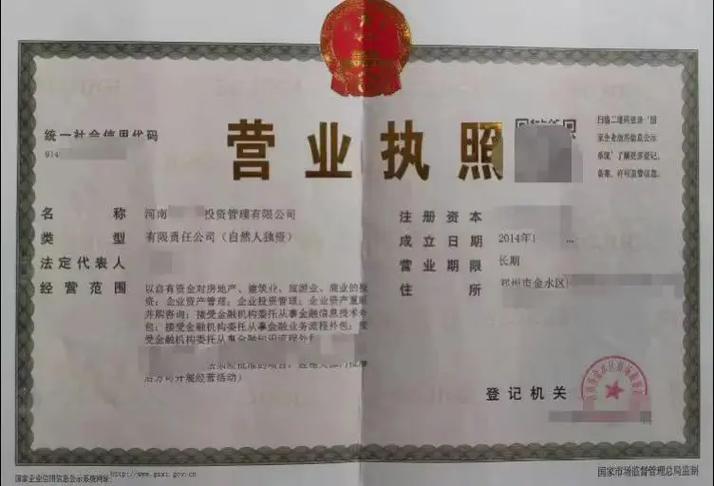 统一社会信用代码
914
营业执照
扫描二维码登录"国
家企业信用信息公示
系统"了解更多登记、
备案、许可监管信息。
名称 河南 投资管理有限公司
类型 有限责任公司（自然人独资）
法定代表人
经营范围 以自有资金对房地产、建筑业、旅游业、商业的投
资；企业资产管理；企业投资管理；企业资产重组
并购咨询；接受金融机构委托从事金融信息技术外
包；接受金融机构委托从事金融业务流程外包；接
受金融机构委托从事金融知识流程外
后方可开展经营活动）
注册资本
成立日期 2014年1
营业期限 长期
住所 郑州市金水区
登记机关
国家企业信用信息公示系统网址：http://www.gsxt.gov.cn
国家市场监督管理总局监制